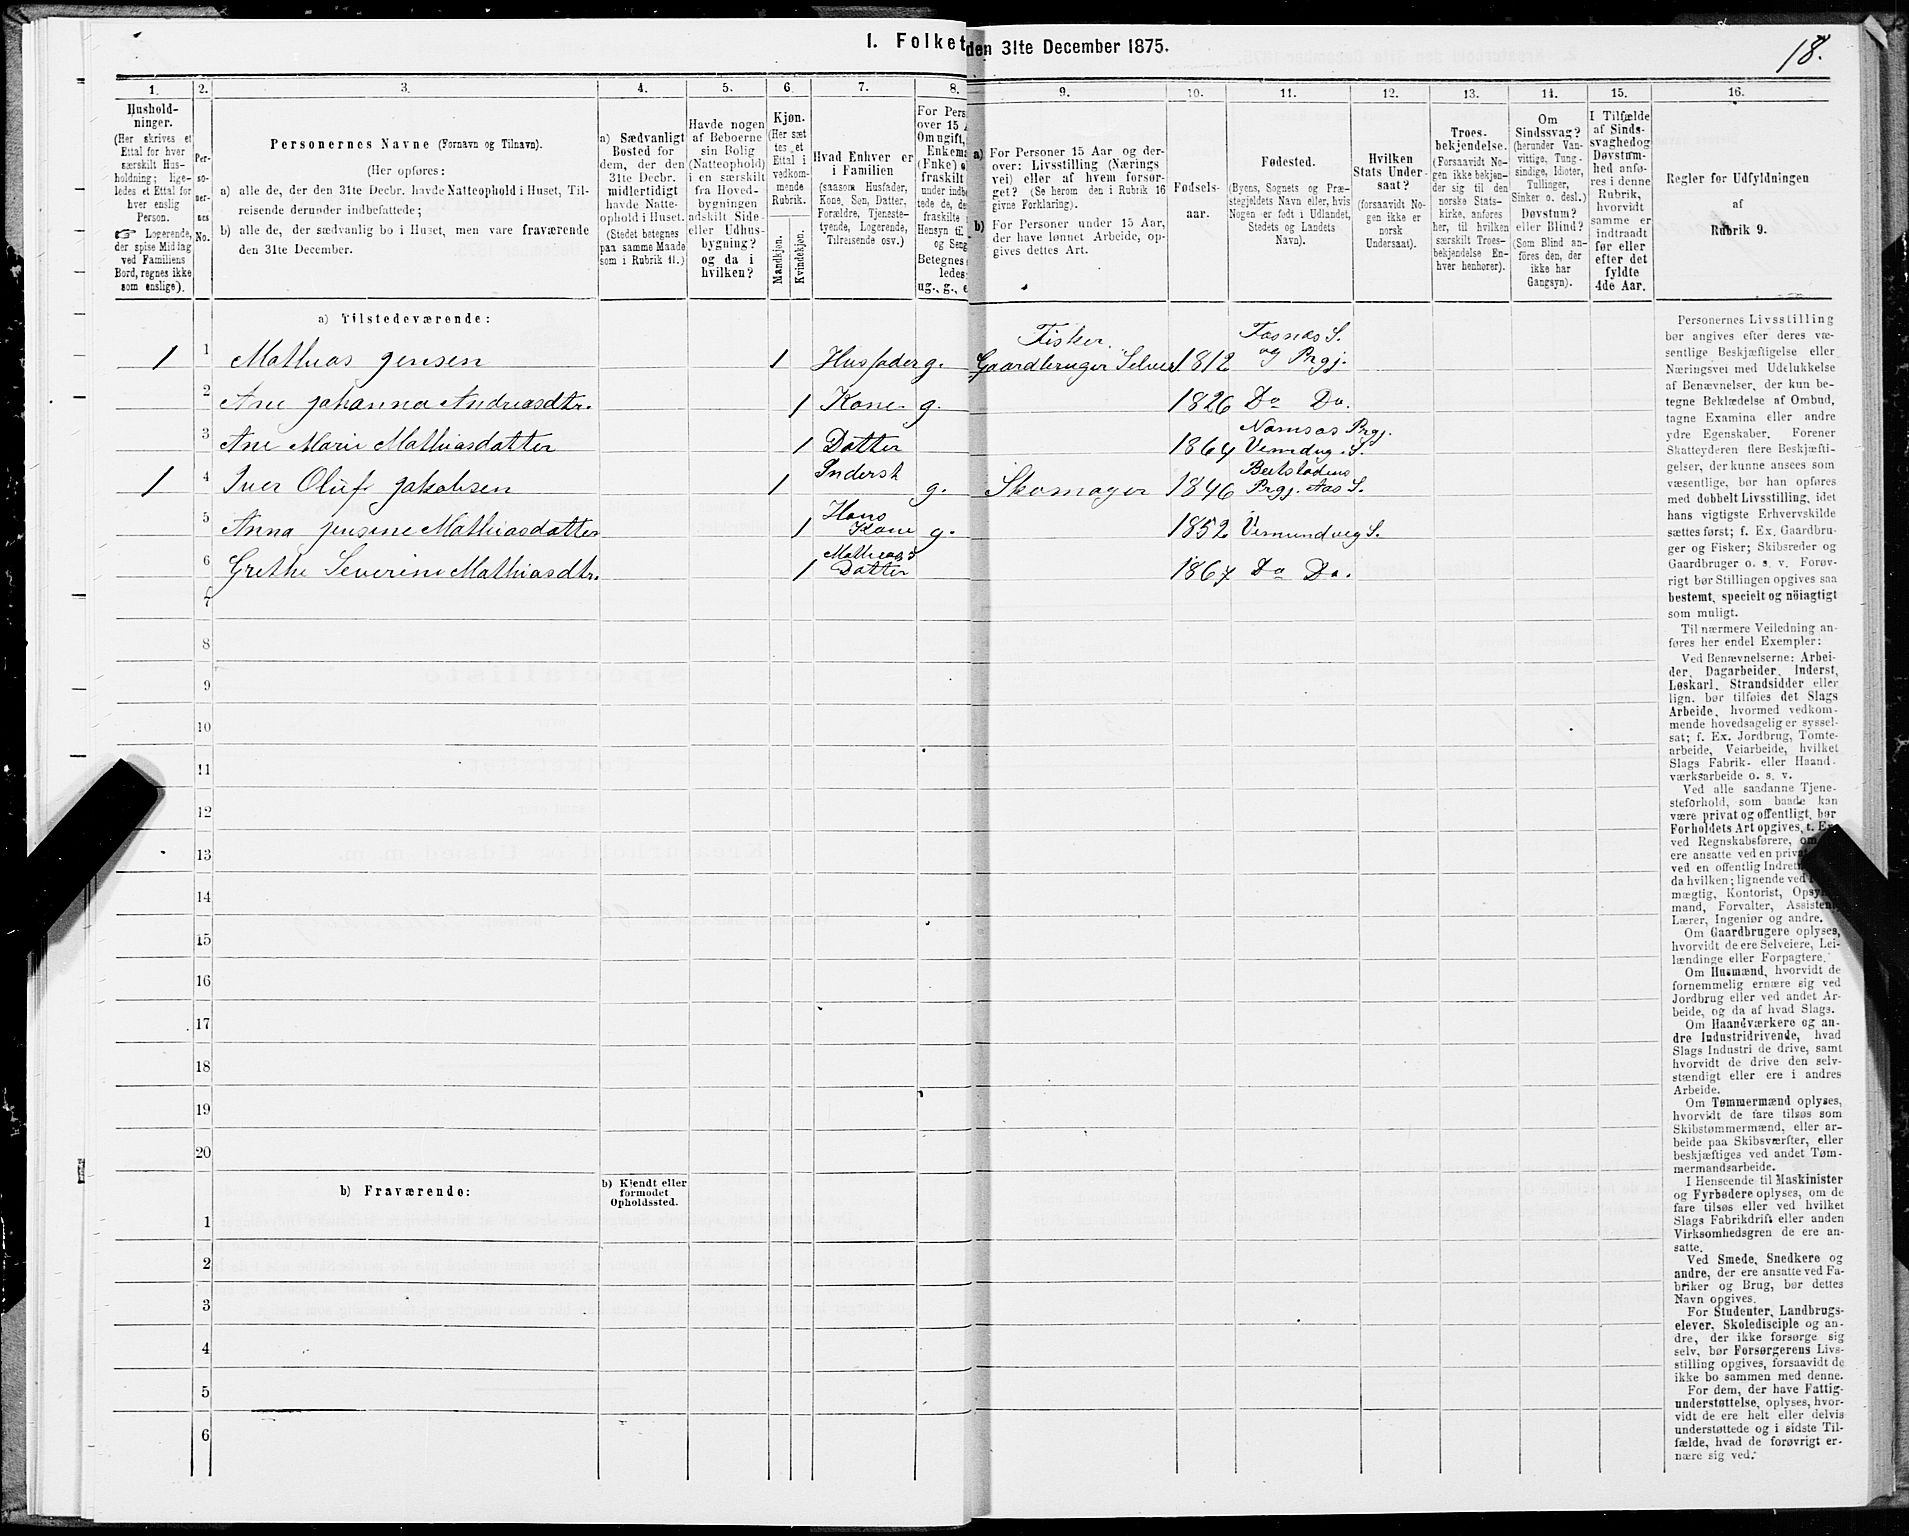 I. Folket
den 31te December 1875.
18.
1. 2. 3. 4. 5. 6. 7. 8. 9. 10. 11. 12. 13. 14. 15. 16.
Hushold-
ninger.
(Her skrives et
Ettal for hver
særskilt Hus-
holdning; lige-
ledes et Ettal for
hver enslig
Person.
☞ Logerende,
der spise Middag
ved Familiens
Bord, regnes ikke
som enslige).
Per-
so-
ner-
nes
No.
Personernes Navne (Fornavn og Tilnavn).
(Her opføres:
a) alle de, der den 31te Decbr. havde Natteophold i Huset, Til-
reisende derunder indbefattede;
b) alle de, der sædvanlig bo i Huset, men vare fraværende
den 31te December.
a) Sædvanligt
Bosted for
dem, der den
31te Decbr.
midlertidigt
havde Natte-
ophold i Huset.
(Stedet betegnes
paa samme Maade
som i Rubrik 11.)
Havde nogen
af Beboerne
sin Bolig
(Natteophold)
i en særskilt
fra Hoved-
bygningen
adskilt Side-
eller Udhus-
bygning?
og da i
hvilken?
Kjøn.
(Her sæt
tes et
Ettal i
vedkom-
mende
Rubrik.
Mandkjøn.
Kvindekjøn.
Hvad Enhver er
i Familien
(saasom Husfader,
Kone, Søn, Datter,
Forældre, Tjeneste-
tyende, Logerende,
Tilreisende osv.)
For Pers
over 15 A
Om ugift,
Enkema
(Enke) e
fraskilt
under indbe
tede de, de
fraskilte
Hensyn til
og Seng
Betegnes
ledes:
ug., g., e
a) For Personer 15 Aar og der-
over: Livsstilling (Nærings
vei) eller af hvem forsør-
get? (Se herom den i Rubrik 16
givne Forklaring).
b) For Personer under 15 Aar,
der have lønnet Arbeide, op-
gives dettes Art.
Fødsels-
aar.
Fødested.
(Byens, Sognets og Præ-
stegjeldets Navn eller, hvis
Nogen er født i Udlandet,
Stedets og Landets
Navn).
Hvilken
Stats Under-
saat?
(forsaavidt No-
gen ikke er
norsk
Undersaat).
Troes-
bekjendelse.
(Forsaavidt No-
gen ikke bekjen-
der sig til den
norske Stats-
kirke, anføres
her, til hvilken
særskilt Troes-
bekjendelse En-
hver henhører).
Om
Sindssvag?
(herunder Van-
vittige, Tung-
sindige, Idioter,
Tullinger,
Sinker o. desl.)
Døvstum?
eller Blind?
(Som Blind an-
føres den, der
ikke har
Gangsyn).
I Tilfælde
af Sinds-
svaghed og
Døvstum-
hed anfø-
res i denne
Rubrik,
hvorvidt
samme er
indtraadt
før eller
efter det
fyldte
4de Aar.
Regler for Udfyldningen
af
Rubrik 9.
a) Tilstedeværende:
1 1 Mathias Jensen 1 Husfader g. Fisker. Gaardbruger Selveier 1812 Fosnes S. og Prgj.
2 Ane Johanna Andreasdtr. 1 Kone g. 1826 Do Do.
3 Ane Marie Mathiasdatter 1 Datter 1864 Namsos Prgj. Vemdvg. S.
1 4 Iver Oluf Jakobsen 1 Inderst g. Skomager 1846 Beitstadens Prgj. Aas S.
5 Anna Jensine Mathiasdatter 1 Hans Kone g. 1852 Vemundveg S.
6 Grethe Severine Mathiasdtr. 1 Mathias's Datter 1867 Do Do.
7
8
9
10
11
12
13
14
15
16
17
18
19
20
b) Fraværende:
b) Kjendt eller
formodet
Opholdssted.
1
2
3
4
5
6
Personernes Livsstilling
bør angives efter deres væ-
sentlige Beskjæftigelse eller
Næringsvei med Udelukkelse
af Benævnelser, der kun be-
tegne Beklædelse af Ombud,
tagne Examina eller andre
ydre Egenskaber. Forener
Skatteyderen flere Beskjæfti-
gelser, der kunne ansees som
væsentlige, bør han opføres
med dobbelt Livsstilling, idet
hans vigtigste Erhvervskilde
sættes først; f. Ex. Gaardbru-
ger og Fisker; Skibsreder og
Gaardbruger o. s. v. Forøv-
rigt bør Stillingen opgives saa
bestemt, specielt og nöiagtigt
som muligt.
Til nærmere Veiledning an-
føres her endel Exempler:
Ved Benævnelserne: Arbei-
der, Dagarbeider, Inderst,
Løskarl, Strandsidder eller
lign. bør tilføies det Slags
Arbeide, hvormed vedkom-
mende hovedsagelig er syssel-
sat; f. Ex. Jordbrug, Tomte-
arbeide, Veiarbeide, hvilket
Slags Fabrik- eller Haand-
værksarbeide o. s. v.
Ved alle saadanne Tjene-
steforhold, som baade kan
være privat og offentligt, bør
Forholdets Art opgives, t. Ex.
ved Regnskabsførere, om
ere ansatte ved en privat
ved en offentlig Indret
da hvilken; lignende ved
mægtig, Kontorist, Opsyns
mand, Forvalter, Assistent,
Lærer, Ingeniør og andre.
Om Gaardbrugere oplyses,
hvorvidt de ere Selveiere, Lei-
lændinge eller Forpagtere.
Om Husmænd, hvorvidt de
fornemmelig ernære sig ved
Jordbrug eller ved andet Ar-
beide, og da af hvad Slags.
Om Haandværkere og an-
dre Industridrivende, hvad
Slags Industri de drive, samt
hvorvidt de drive den selv-
stændigt eller ere i andres
Arbeide.
Om Tømmermænd oplyses,
hvorvidt de fare tilsøs som
Skibstømmermænd, eller ar-
beide paa Skibsværfter, eller
beskjæftiges ved andet Tøm-
mermandsarbeide.
I Henseende til Maskinister
og Fyrbødere oplyses, om de
fare tilsøs eller ved hvilket
Slags Fabrikdrift eller anden
Virksomhedsgren de ere an-
satte.
Ved Smede, Snedkere og
andre, der ere ansatte ved Fa-
briker og Brug, bør dettes
Navn opgives.
For Studenter, Landbrugs-
elever, Skoledisciple og an-
dre, der ikke forsørge sig
selv, bør Forsørgerens Livs-
stilling opgives, forsaavidt de
ikke bo sammen med denne.
For dem, der have Fattig-
understøttelse, oplyses, hvor-
vidt de ere helt eller delvis
understøttede og i sidste Til-
fælde, hvad de forøvrigt er-
nære sig ved.